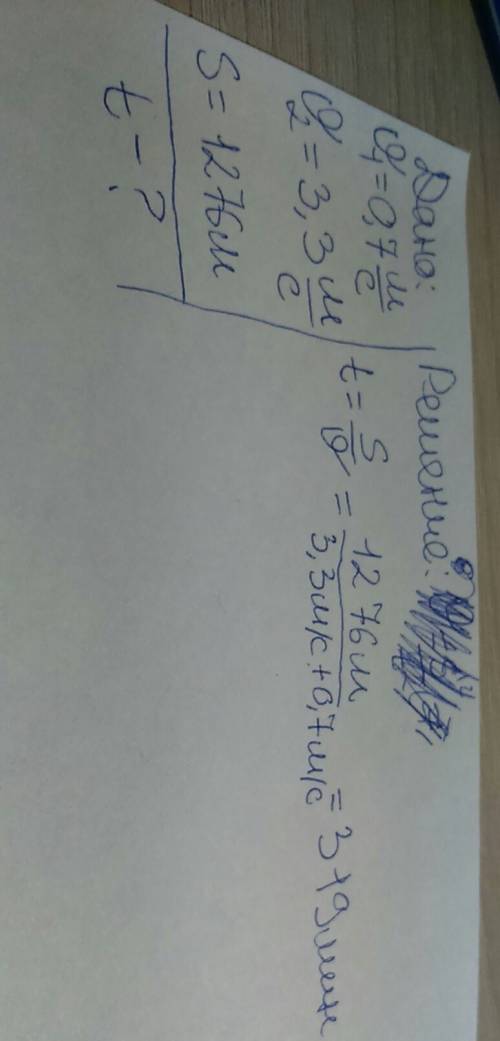 Дано:
υ₁ = 0,7 м/с
υ₂ = 3,3 м/с
S = 1276м
t - ?
Решение:
t = S/υ = 1276м / 3,3м/с + 0,7м/с = 319мин